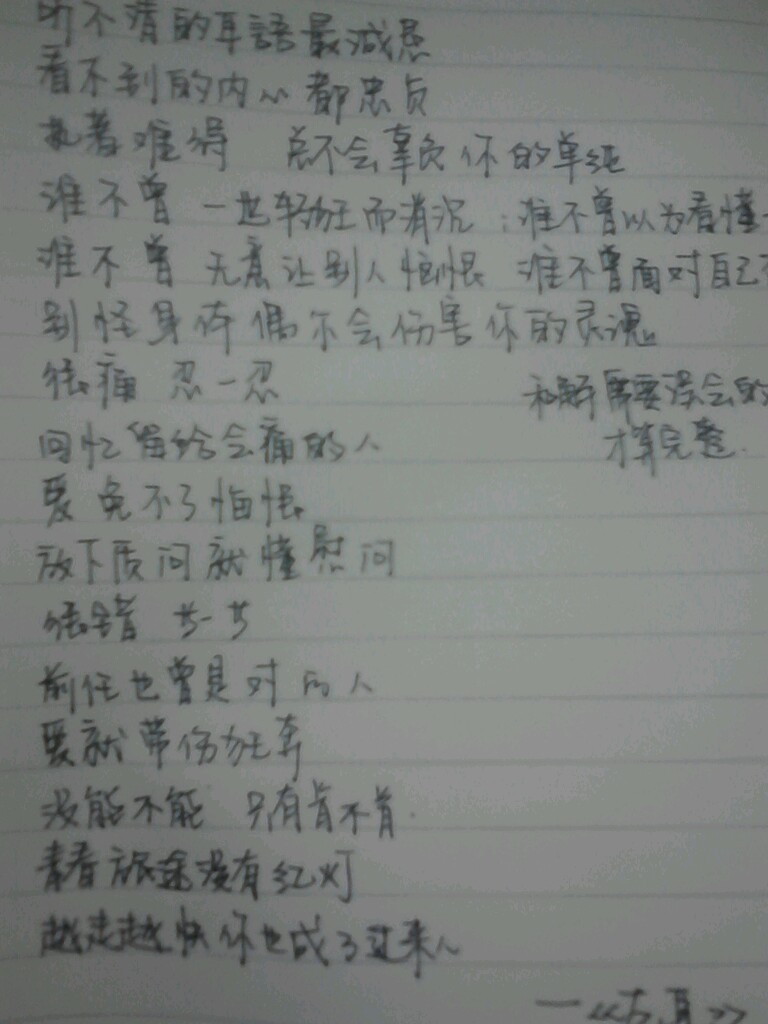 听不清的耳語最減愚
看不到的内心都忠贞
执著难得 总不会辜负你的单纯
谁不曾 一也轻狂而消沉 : 谁不曾以为看懂
谁不曾 无意让别人悔恨 谁不曾面对自己
别怪身体偶尔会伤害你的灵魂
很痛 忍一忍
和解需要误会的
回忆留给会痛的人
才算完整.
爱免不了悔恨
放下质问就懂慰问
很错 等一等
前任也曾是对的人
爱就带伤狂奔
没能不能 只有肯不肯.
青春旅途没有红灯
越走越快你也成了过来人